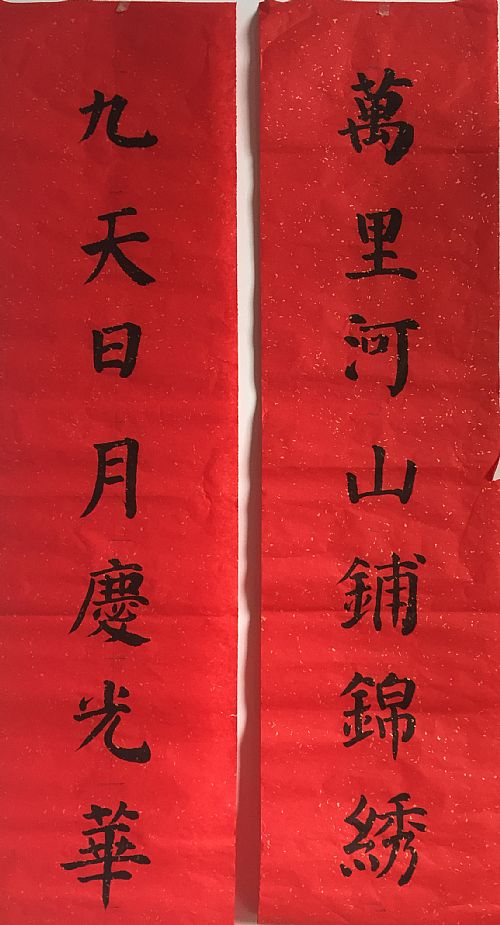 萬里河山鋪錦綉
九天日月慶光華